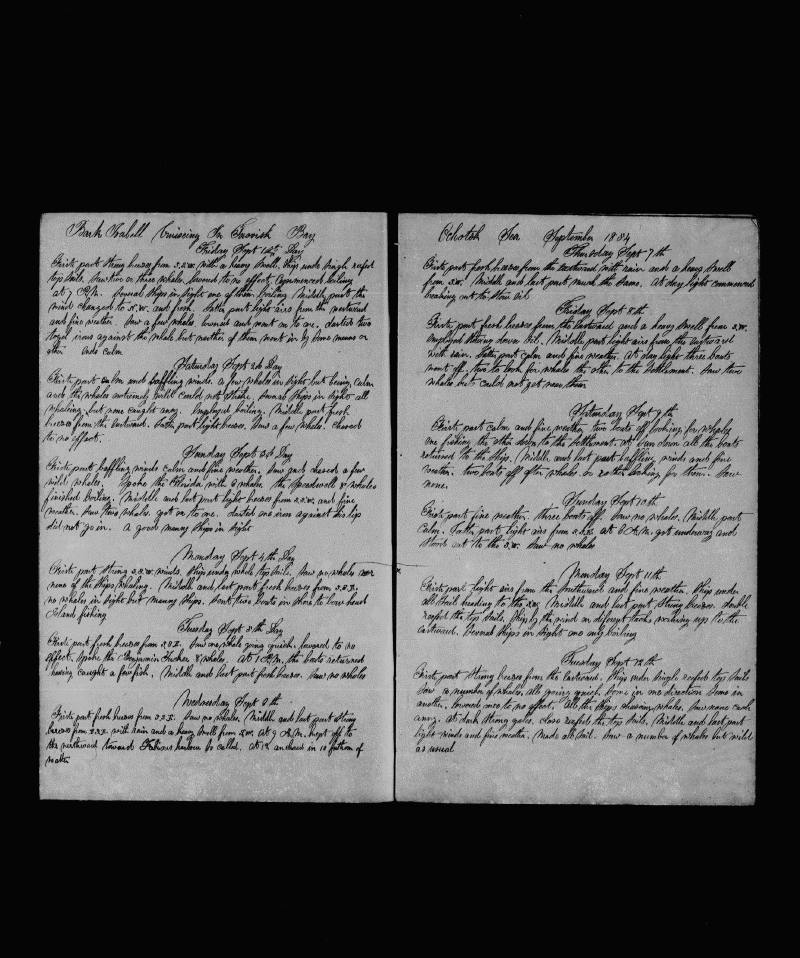 Bark Isabell Cruiseing In Shovish Bay
Friday Sept 1st Day
Firste part strong breeses from S.S.W. with a heavy swell. Ship under single reefed
top sails. Saw two or three whales. lowered to no effect. Commenced boiling
at 7 P.M. Several Ships in sight one of them boiling. Middle part the
wind changed to N.W. and fresh. Latter part light airs from the westward
and fine weather. Saw a few whales lowered and went on to one. darted two
toggel irons against the whale but neither of them went in by some means or
other ends calm
Saturday Sept 2d Day
Firste part calm and baffling winds. a few whales in sight but being calm
and the whales not being still could not strike. Several Ships in sight all
whaleing but none caught any. Employed boiling. Middle part fresh
breeses from the Eastward. Latter part light breeses. Saw a few whales. Chased
to no effect.
Sunday Sept 3d Day
Firste part baffling winds calm and fine weather. Saw and chased a few
wild whales. Spoke the Florida with 6 whales. the Speedwell 4 whales
finished boiling. Middle and last part light breeses from S.S.W. and fine
weather. Saw two whales. got on to one. darted one iron against his lip
did not go in. a good many Ships in sight
Monday Sept 4th Day
Firste part strong S.S.W. winds. Ship under whole top sails. Saw no whales nor
none of the Ships whaleing. Middle and last part fresh breeses from S.S.E.
no whales in sight but maney Ships. Sent two boats in shore to
Island fishing
Tuesday Sept 5th Day
Firste part fresh breeses from S.S.E. Saw one whale going quick. lowered to no
effect. Spoke the Benjamin Tucker 4 whales. At 1 P.M. the boats returned
haveing caught a few fish. Middle and last part fresh breeses. Saw no whales
Wednesday Sept 6th
Firste part fresh breeses from S.S.E. Saw no whales. Middle and last part strong
breeses from E.S.E. with rain and a heavy swell from S.W. at 9 A.M. kept off to
the northward towards harbour so called. At 12 anchored in 10 fathom of
water
Ochotsk Sea September 1854
Thursday Sept 7th
Firste part fresh breeses from the Eastward with rain and a heavy swell
from S.W. Middle and last part much the same. At day light commenced
breaking out to stow oil
Friday Sept 8th
Firste part fresh breeses from the Eastward and a heavy swell from S.W.
employed stowing down oil. Middle part light airs from the Eastward
with rain. Latter part calm and fine weather. At day light three boats
went off, two to look for whales the other to the Settlement. Saw two
whales but could not get near them
Saturday Sept 9th
Firste part calm and fine weather two boats off looking for whales
one fishing the other down to the Settlement. at Sun down all the boats
returned to the Ship. Middle and last part baffling winds and fine
weather. two boats off after whales or rather looking for them. Saw
none.
Sunday Sept 10th
Firste part fine weather. three boats off. Saw no whales. Middle part
Calm. Latter part light airs from S.S.E. at 6 A.M. got underway and
Stood out to the S.W. Saw no whales
Monday Sept 11th
Firste part light airs from the Southward and fine weather. Ship under
all sail heading to the S.W. Middle and last part strong breeses. double
reefed the top sails. Ship by the wind on different tacks working up to the
eastward. Several Ships in sight one only boiling
Tuesday Sept 12th
Firste part strong breeses from the Eastward. Ship under single reefed top sails
Saw a number of whales, all going quick. Some in one direction some in
another. lowered once to no effect. All the Ships chaseing whales. Saw none catch
any. at dark strong gales. close reefed the top sails. Middle and last part
light winds and fine weather. Made all sail. Saw a number of whales but wild
as usual